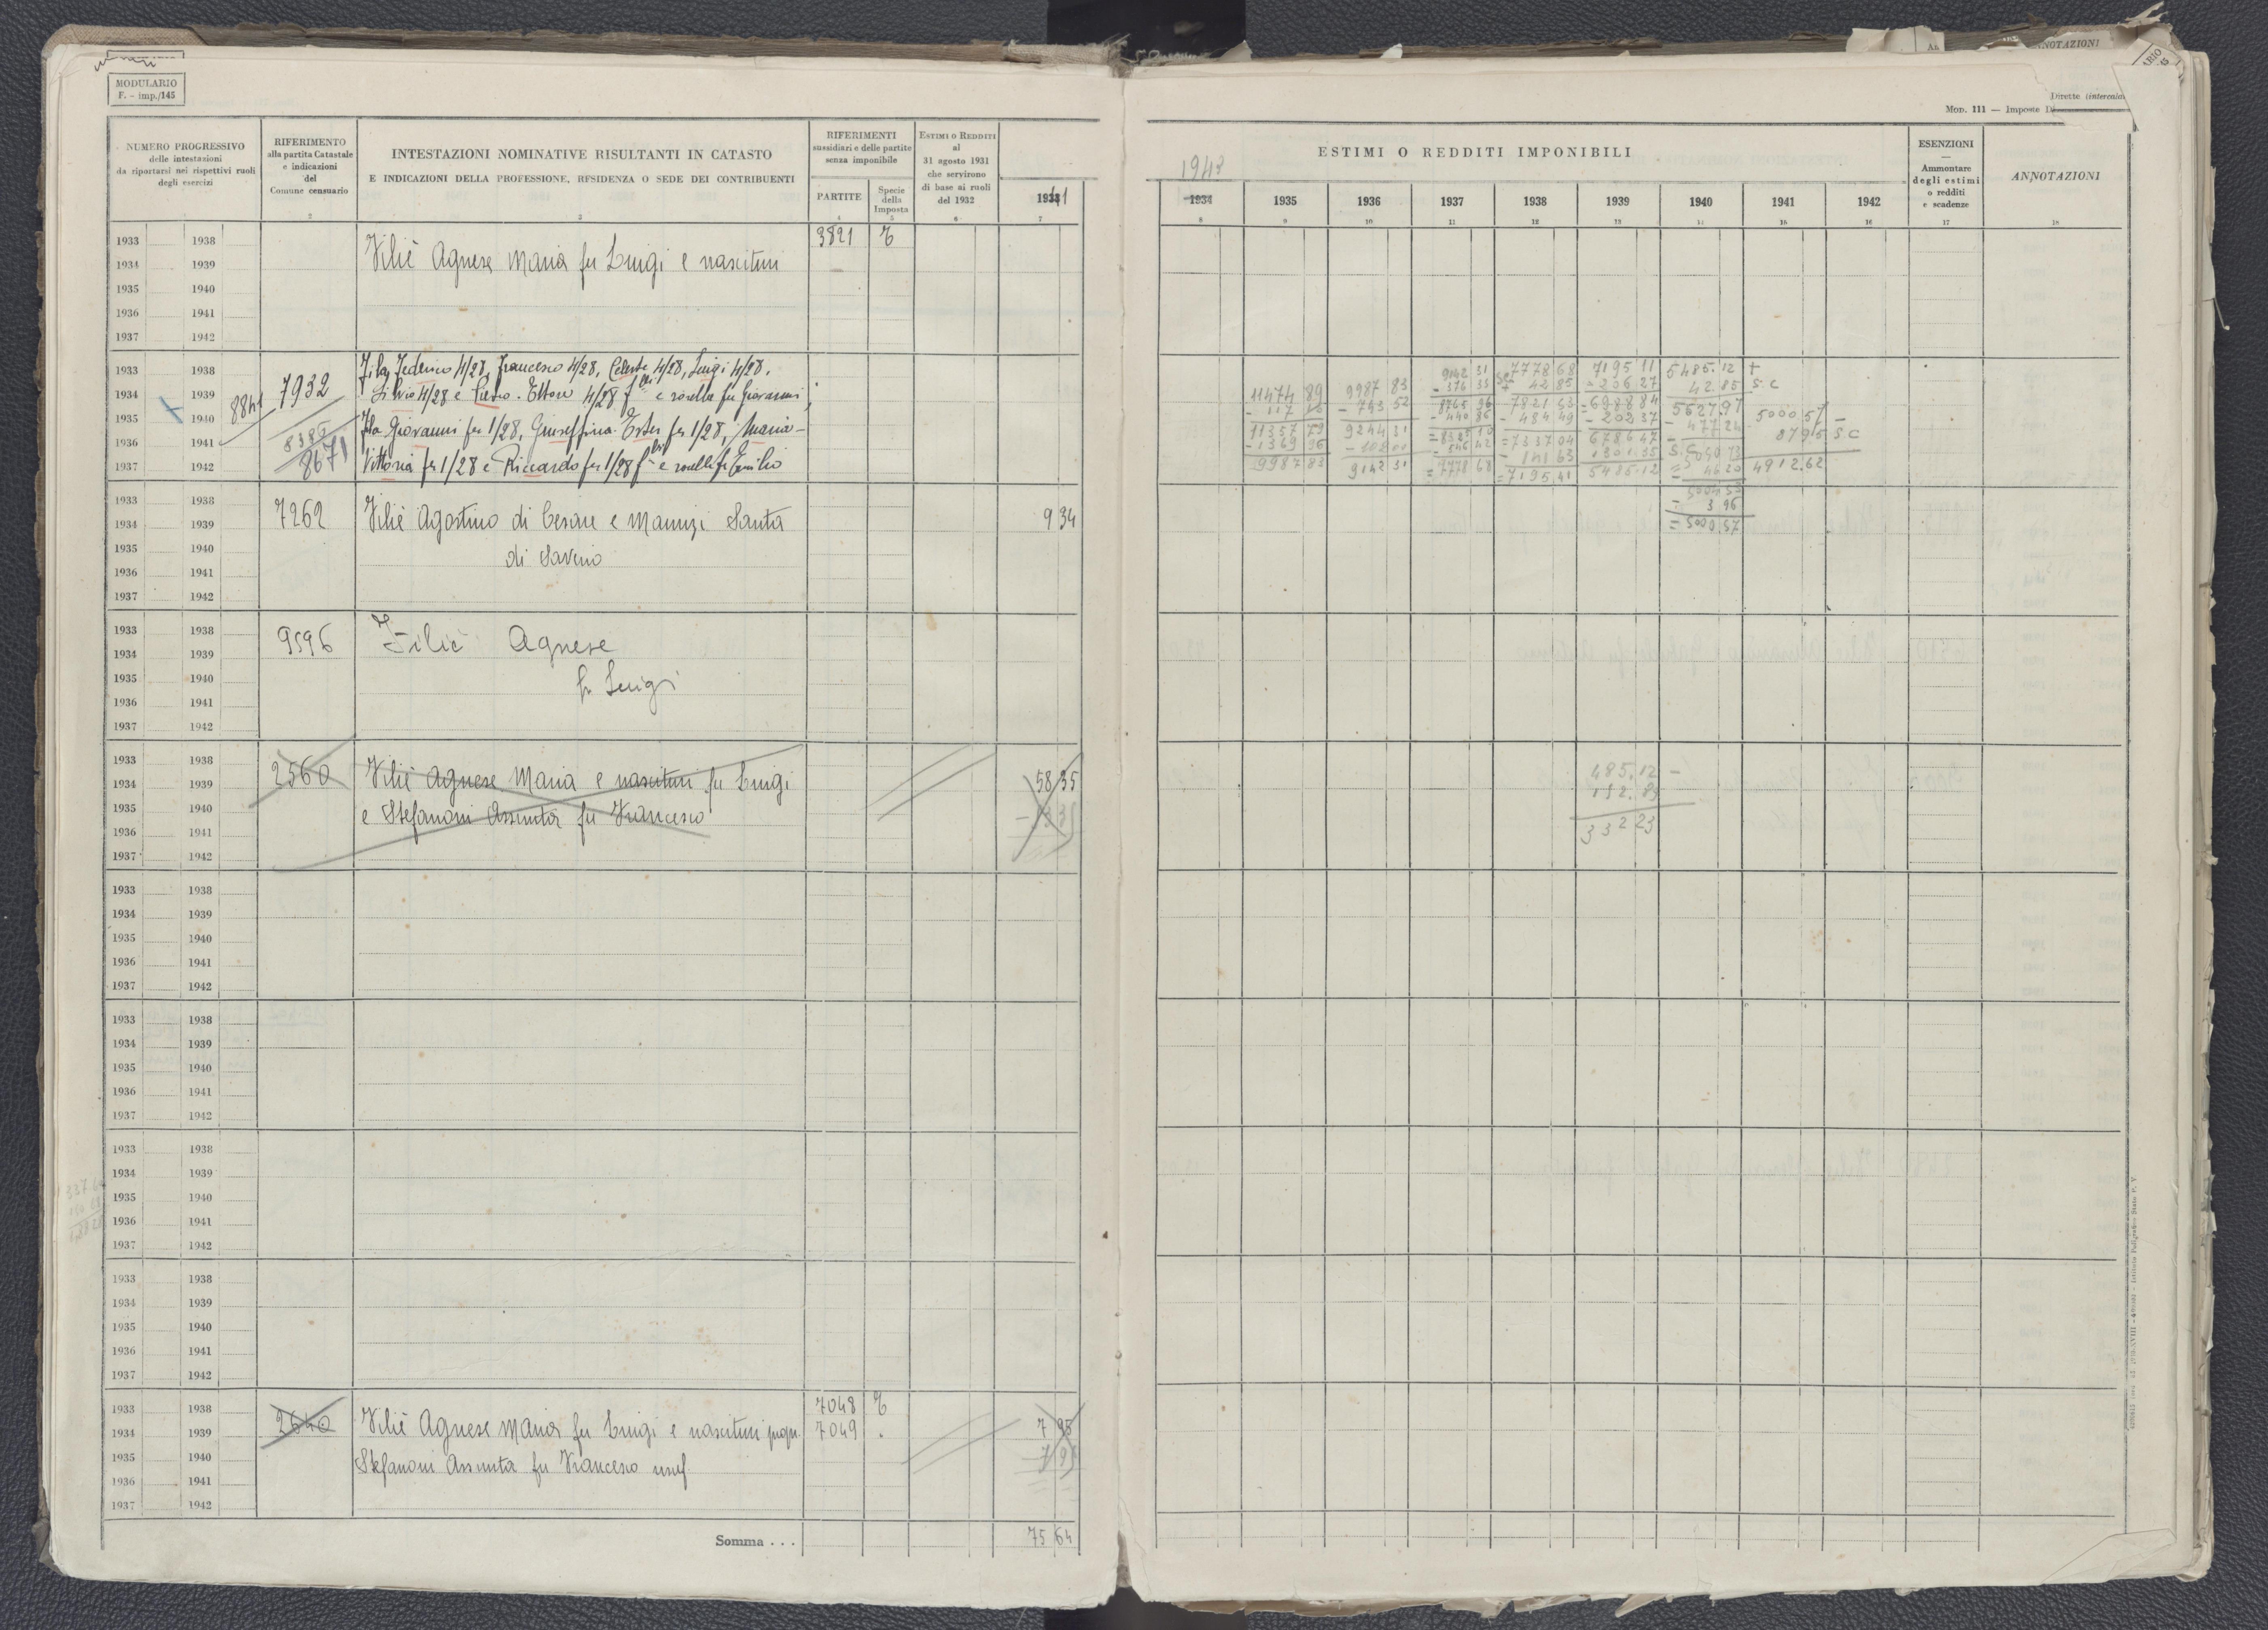 MODULARIO
F. - imp./145
NUMERO PROGRESSIVO
delle intestazioni
da riportarsi nei rispettivi ruoli
degli esercizi
RIFERIMENTO
alla partita Catastale
e indicazioni
del
Comune censuario
2
INTESTAZIONI NOMINATIVE RISULTANTI IN CATASTO
E INDICAZIONI DELLA PROFESSIONE, RESIDENZA O SEDE DEI CONTRIBUENTI
3
RIFERIMENTI
sussidiari e delle partite
senza imponibile
PARTITE
4
Specie
della
Imposta
5
ESTIMI O REDDITI
al
31 agosto 1931
che servirono
di base ai ruoli
del 1932
6
7
Mod. 111 — Imposte
Dirette (intercala
1943
ESTIMI O REDDITI IMPONIBILI
1934 1935 1936 1937 1938 1939 1940 1941 1942
8 9 10 11 12 13 14 15 16
ESENZIONI
—
Ammontare
degli estimi
o redditi
e scadenze
17
ANNOTAZIONI
18
1933 1938
1934 1939
1935 1940
1936 1941
1937 1942
Filiè Agnese Maria fu Luigi e nascituri
3821
1933 1938
1934 1939
1935 1940
1936 1941
1937 1942
8841
7932
8386
8671
Federico 4/28, Francesco 4/28, Celeste 4/28, Luigi 4/28,
Silvio 4/28 e Pietro - Ettore 4/28 f.lli e sorelle fu Giovanni;
Giovanni per 1/28, Giuseffina Ester per 1/28, Maria-
Vittoria per 1/28 e Riccardo per 1/28 f.lli e sorelle fu Emilio
11474 89
11357 79
- 1369 96
9987 83
9987 83
- 743 52
9244 31
9142 31
9142 31
- 376 35
8765 96
7778 68
42 85
7821 53
- 484 49
= 7337 04
- 141 63
= 7195 41
7195 11
- 206 27
= 6988 84
- 202 37
6786 47
1301 35
5485.12
5485.12 +
42.85 S.C
5627,97
- 477 24
46 20
- 3 96
= 5000.57
5000 57 -
87 95 S.C
4912.62
1933 1938
1934 1939
1935 1940
1936 1941
1937 1942
7262
Filiè Agostino di Cesare e Mannzi Santa
di Saverio
9 34
1933 1938
1934 1939
1935 1940
1936 1941
1937 1942
9596
Filiè Agnese
fu Luigi
1933 1938
1934 1939
1935 1940
1936 1941
1937 1942
2560
Filiè Agnese Maria e nascituri fu Luigi
e Stefanoni Assunta fu Francesco
58 35
485.12 -
152.89
332 23
1933 1938
1934 1939
1935 1940
1936 1941
1937 1942
1933 1938
1934 1939
1935 1940
1936 1941
1937 1942
1933 1938
1934 1939
1935 1940
1936 1941
1937 1942
1933 1938
1934 1939
1935 1940
1936 1941
1937 1942
1933 1938
1934 1939
1935 1940
1936 1941
1937 1942
2640
Filiè Agnese Maria fu Luigi e nascituri propr.
Stefanoni Assunta fu Francesco usuf.
7048
7049
7 95
7 95
Somma . . .
75 64